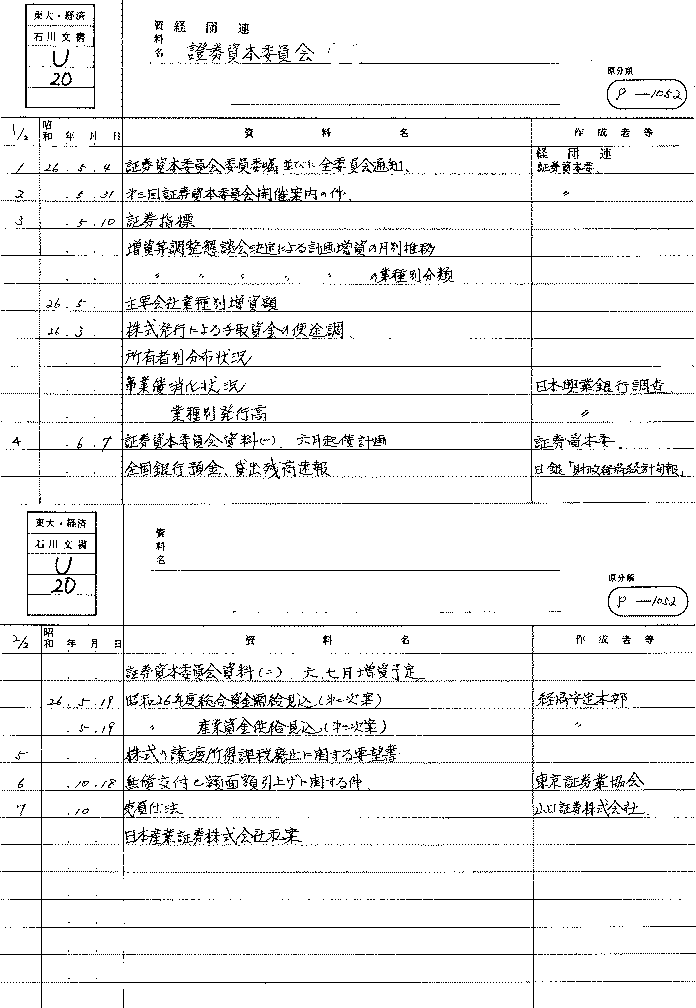 東大・経済
石川文書
U
20
資料名 経団連
證券資本委員会
原分類
P-1052
1/2 昭和 年 月 日 資料名 作成者等
経団連
1 26.5.4 証券資本委員会委員委嘱並びに全委員会通知、 証券資本委.
2 .5.31 オ二回証券資本委員会開催案内の件、 〃
3 .5.10 証券指標
増資等調整懇談会決定による計画増資の月別推移
〃 〃 〃 〃 〃 の業種別分類
26.5 主要会社業種別増資額
26.3 株式発行による手取資金の使途調
所有者別分布状況
事業債消化状況 日本興業銀行調査
業種別発行高 〃
4 .6.7 証券資本委員会資料(一) 六月起債計画 証券資本委.
全国銀行預金、貸出残高速報 日銀「財政経済統計旬報」
東大・経済
石川文書
U
20
資料名
原分類
P-1052
2/2 昭和 年 月 日 資料名 作成者等
証券資本委員会資料(二) 六、七月増資予定
26.5.19 昭和26年度総合資金需給見込(オ二次案) 経済安定本部
.5.19 〃 産業資金供給見込(オ二次案) 〃
5 株式の譲渡所得課税廃止に関する要望書
6 .10.18 無償交付と額面額引上げに関する件、 東京証券業協会
7 .10 売買仕法 山一証券株式会社
日本産業証券株式会社案